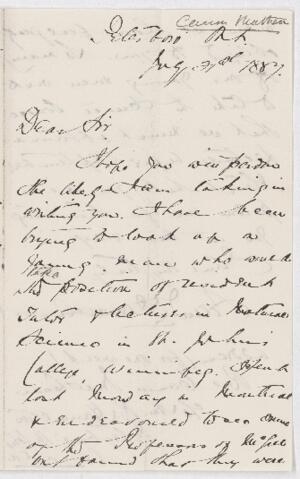 Canon Matheson
Peterboro Ont
July 31st 1887.
Dear Sir.
I hope you will pardon
the liberty I am taking in
writing you. I have been
trying to look up a
young man who would
take
the position of resident
Tutor & lecturer in Natural
Science in St. John's
College, Winnipeg. I spent
last Monday in Montreal
& endeavoured to see some
of the Professors of McGill
but found that they were